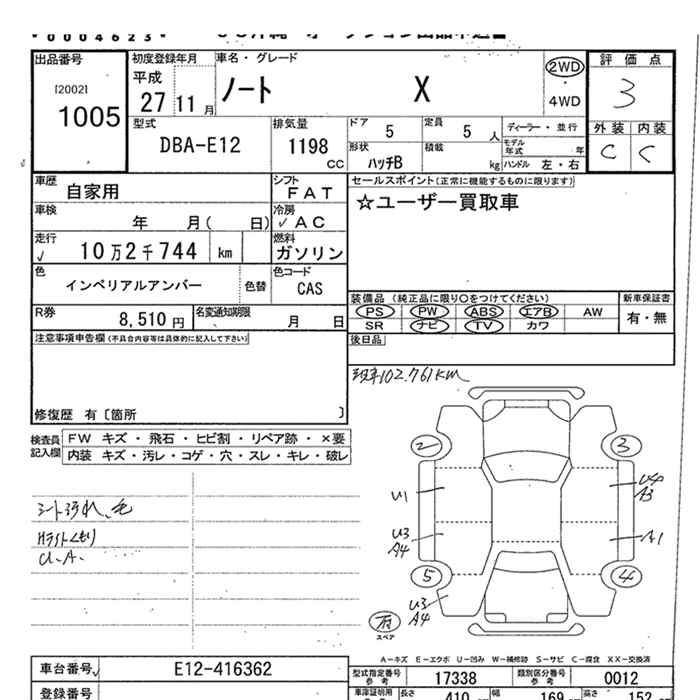 * 0 0 0 4 6 2 3 *
出品番号
[2002]
1005
初度登録年月
平成
27 11 月
車名・グレード
ノート X
2WD
・
4WD
評価点
3
外装 内装
C C
型式
DBA-E12
排気量
1198
CC
ドア
5
定員
5 人
形状
ハッチB
積載
kg
ディーラー・並行
モデル年式 年
ハンドル 左・右
車歴
自家用
シフト
F A T
車検
年 月( 日)
冷房
✓ A C
走行
✓ 10万2千744 km
燃料
ガソリン
色
インペリアルアンバー
色替
色コード
CAS
R券
8,510 円
名変通知期限
月 日
セールスポイント(正常に機能するものに限ります)
☆ユーザー買取車
装備品(純正品に限り○をつけてください)
PS PW ABS エアB AW
SR ナビ TV カワ
新車保証書
有・無
後日品
注意事項申告欄(不具合内容等は具体的に記入して下さい)
修復歴 有〔箇所 〕
検査員記入欄
FW キズ・飛石・ヒビ割・リペア跡・×要
内装 キズ・汚レ・コゲ・穴・スレ・キレ・破レ
シート汚れ、毛
Hライトくもり
U.A.
現車102,761KM
2
3
U1
U4
A3
U3
A4
A1
5
4
U3
A4
有
スペア
A-キズ E-エクボ U-凹み W-補修跡 S-サビ C-腐食 XX-交換済
車台番号
E12-416362
型式指定番号
参考
17338
類別区分番号
参考
0012
登録番号
車庫証明用
長さ
410
幅
169
高さ
152